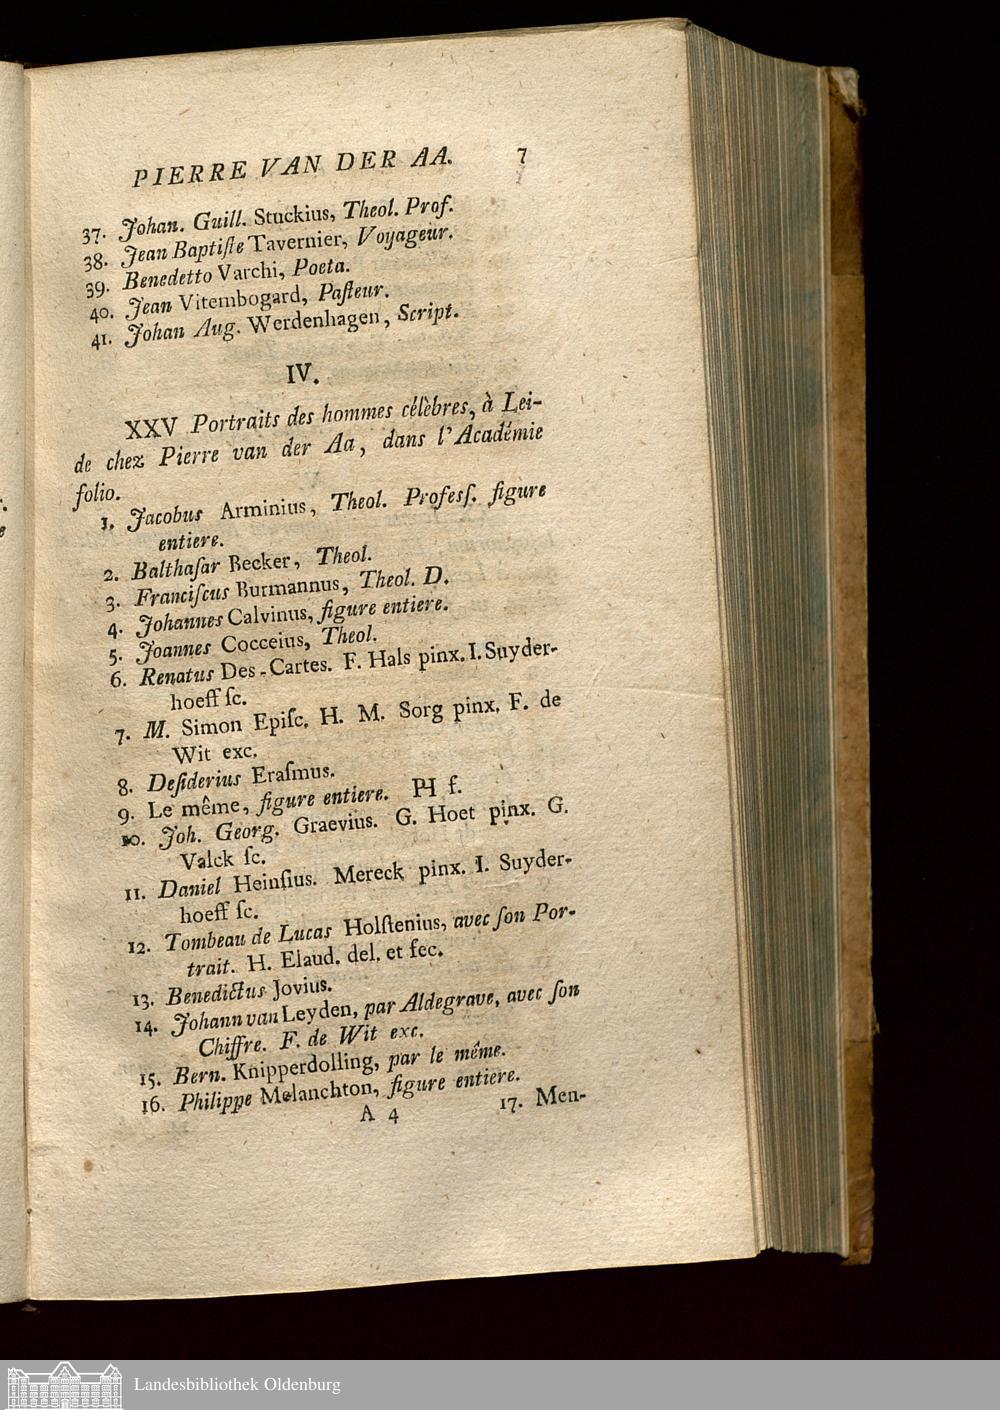 PIERRE VAN DER AA. 7
37. Johan. Guill. Stuckius, Theol. Prof.
38. Jean Baptiſte Tavernier, Voyageur.
39. Benedetto Varchi, Poeta.
40. Jean Vitembogard, Paſteur.
41. Johan Aug. Werdenhagen, Script.
IV.
XXV Portraits des hommes célèbres, à Lei-
de chez Pierre van der Aa, dans l'Académie
folio.
1. Jacobus Arminius, Theol. Profeſſ. figure
entiere.
2. Balthaſar Becker, Theol.
3. Franciſcus Burmannus, Theol. D.
4. Johannes Calvinus, figure entiere.
5. Joannes Cocceius, Theol.
6. Renatus Des-Cartes. F. Hals pinx. I. Suyder-
hoeff ſc.
7. M. Simon Epiſc. H. M. Sorg pinx. F. de
Wit exc.
8. Deſiderius Eraſmus.
9. Le même, figure entiere. PH f.
10. Joh. Georg. Graevius. G. Hoet pinx. G.
Valck ſc.
11. Daniel Heinſius. Mereck pinx. I. Suyder-
hoeff ſc.
12. Tombeau de Lucas Holſtenius, avec ſon Por-
trait. H. Elaud. del. et fec.
13. Benedictus Jovius.
14. Johann van Leyden, par Aldegrave, avec ſon
Chiffre. F. de Wit exc.
15. Bern. Knipperdolling, par le même.
16. Philippe Melanchton, figure entiere.
A 4 17. Men-
Landesbibliothek Oldenburg